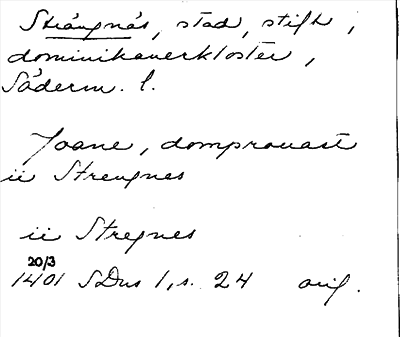 Strängnäs, stad, stift,
dominikanerkloster,
Söderm. l.
Joane, domprouast
ii Strengnes
ii Stregnes
20/3
1401 SDns 1, s. 24 orig.